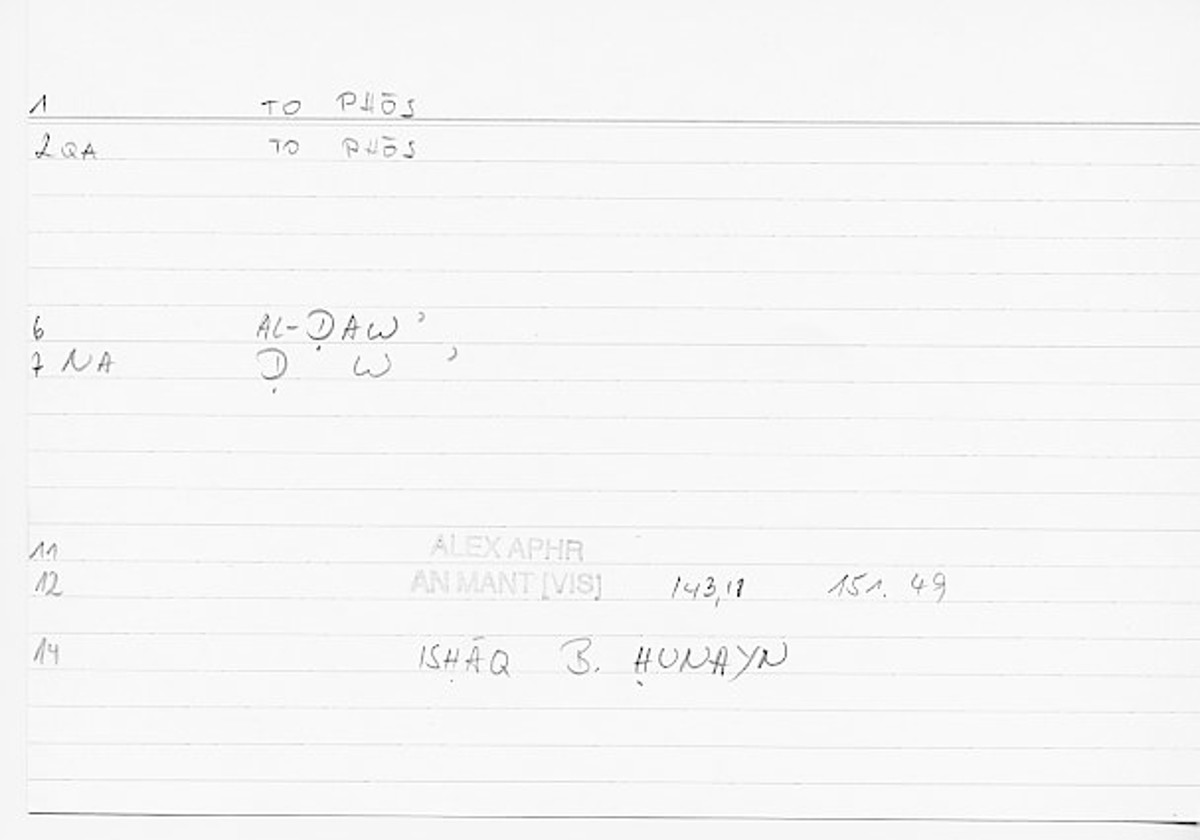 1 TO PHŌS
2 QA TO PHŌS
6 AL-ḌAWʾ
7 NA Ḍ W ʾ
11 ALEX APHR
12 AN MANT [VIS] 143,18 151. 49
14 ISḤĀQ B. ḤUNAYN